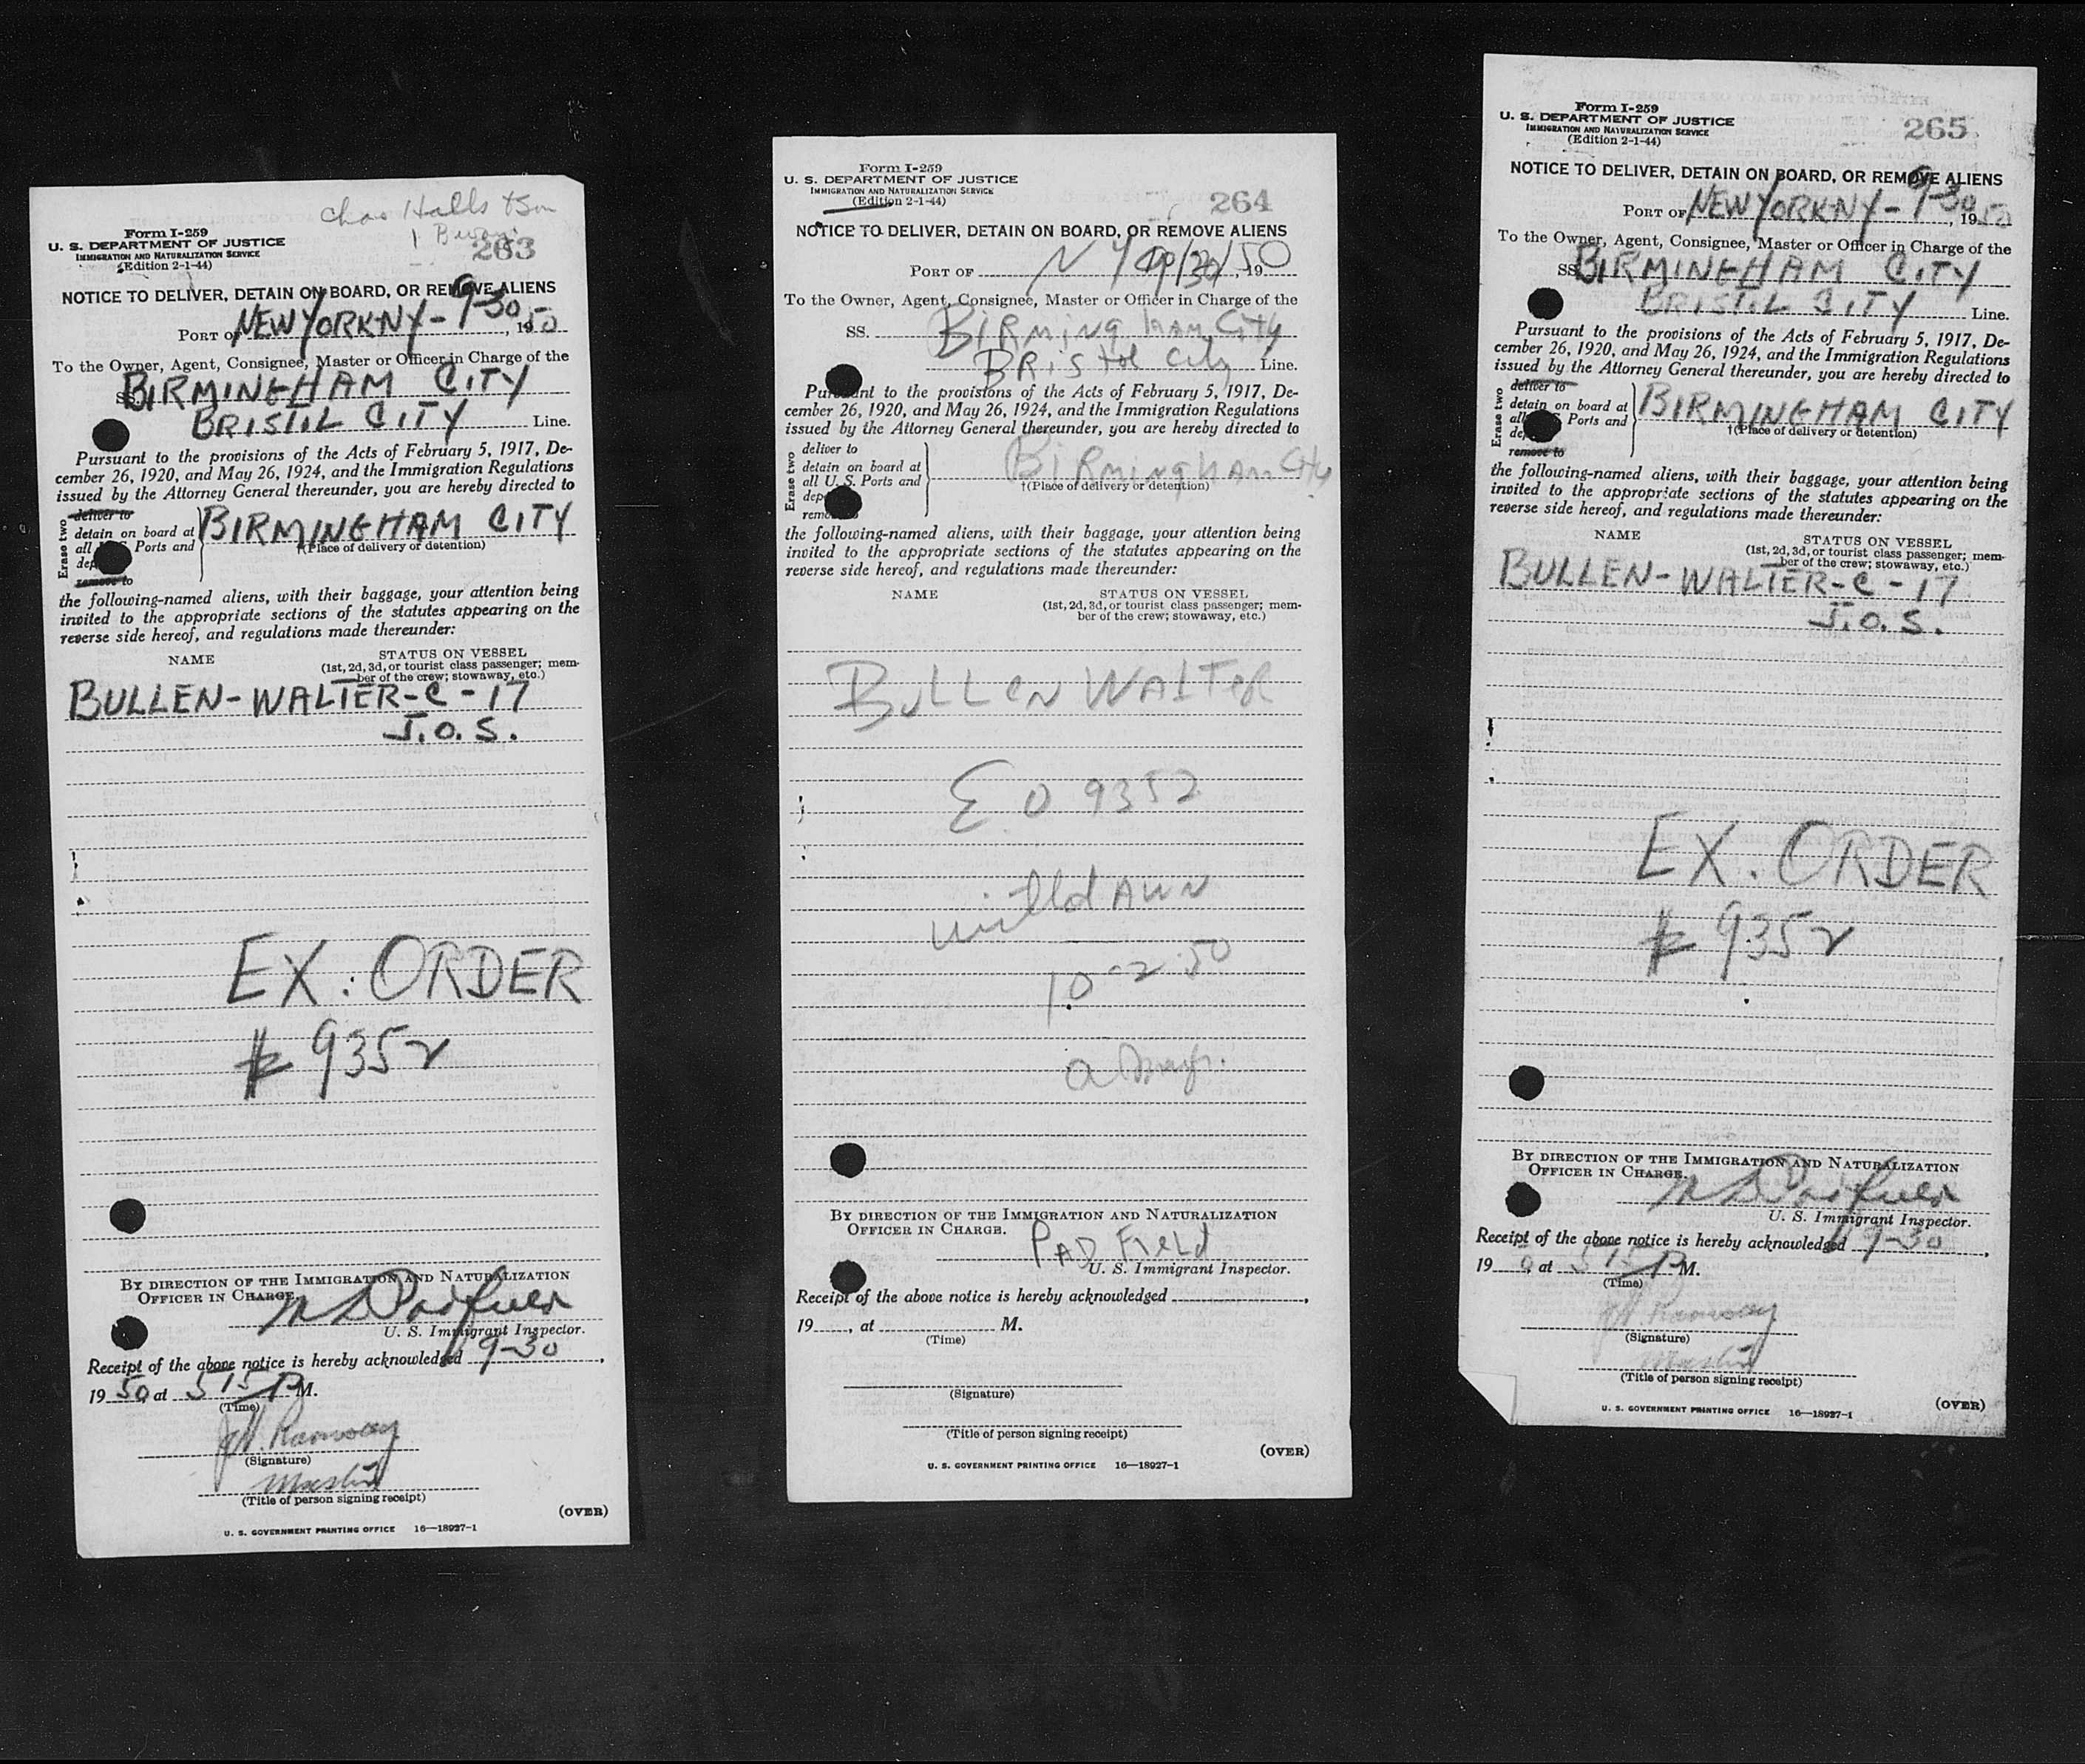 Chas Halls & Son
263
Form I-259
U. S. DEPARTMENT OF JUSTICE
IMMIGRATION AND NATURALIZATION SERVICE
(Edition 2-1-44)
NOTICE TO DELIVER, DETAIN ON BOARD, OR REMOVE ALIENS
PORT OF NEW YORK NY - 9-30, 1950
To the Owner, Agent, Consignee, Master or Officer in Charge of the
SS. BIRMINGHAM CITY
BRISTOL CITY Line.
Pursuant to the provisions of the Acts of February 5, 1917, De-
cember 26, 1920, and May 26, 1924, and the Immigration Regulations
issued by the Attorney General thereunder, you are hereby directed to
Erase two
deliver to
detain on board at
all Ports and
remove to
BIRMINGHAM CITY
†(Place of delivery or detention)
the following-named aliens, with their baggage, your attention being
invited to the appropriate sections of the statutes appearing on the
reverse side hereof, and regulations made thereunder:
NAME
STATUS ON VESSEL
(1st, 2d, 3d, or tourist class passenger; mem-
ber of the crew; stowaway, etc.)
BULLEN - WALTER - C - 17
J.O.S.
EX. ORDER
# 9352
BY DIRECTION OF THE IMMIGRATION AND NATURALIZATION
OFFICER IN CHARGE.
Padfield
U. S. Immigrant Inspector.
Receipt of the above notice is hereby acknowledged 9-30,
1950, at 515 P M.
(Time)
Ramsay
(Signature)
Master
(Title of person signing receipt)
(OVER)
U. S. GOVERNMENT PRINTING OFFICE 16—18927-1
Form I-259
U. S. DEPARTMENT OF JUSTICE
IMMIGRATION AND NATURALIZATION SERVICE
(Edition 2-1-44)
264
NOTICE TO DELIVER, DETAIN ON BOARD, OR REMOVE ALIENS
PORT OF N Y 9/30/50, 19
To the Owner, Agent, Consignee, Master or Officer in Charge of the
SS. BIRMINGHAM City
BRISTOL City Line.
Pursuant to the provisions of the Acts of February 5, 1917, De-
cember 26, 1920, and May 26, 1924, and the Immigration Regulations
issued by the Attorney General thereunder, you are hereby directed to
Erase two
deliver to
detain on board at
all U. S. Ports and
BIRMINGHAM City
†(Place of delivery or detention)
the following-named aliens, with their baggage, your attention being
invited to the appropriate sections of the statutes appearing on the
reverse side hereof, and regulations made thereunder:
NAME
STATUS ON VESSEL
(1st, 2d, 3d, or tourist class passenger; mem-
ber of the crew; stowaway, etc.)
BULLEN WALTER
E O 9352
withdrawn
10-2-50
BY DIRECTION OF THE IMMIGRATION AND NATURALIZATION
OFFICER IN CHARGE.
PADFIELD
U. S. Immigrant Inspector.
Receipt of the above notice is hereby acknowledged ,
19 , at M.
(Time)
(Signature)
(Title of person signing receipt)
(OVER)
U. S. GOVERNMENT PRINTING OFFICE 16—18927-1
Form I-259
U. S. DEPARTMENT OF JUSTICE
IMMIGRATION AND NATURALIZATION SERVICE
(Edition 2-1-44)
265
NOTICE TO DELIVER, DETAIN ON BOARD, OR REMOVE ALIENS
PORT OF NEW YORK NY - 9-30, 1950
To the Owner, Agent, Consignee, Master or Officer in Charge of the
SS. BIRMINGHAM CITY
BRISTOL CITY Line.
Pursuant to the provisions of the Acts of February 5, 1917, De-
cember 26, 1920, and May 26, 1924, and the Immigration Regulations
issued by the Attorney General thereunder, you are hereby directed to
Erase two
deliver to
detain on board at
Ports and
remove to
BIRMINGHAM CITY
†(Place of delivery or detention)
the following-named aliens, with their baggage, your attention being
invited to the appropriate sections of the statutes appearing on the
reverse side hereof, and regulations made thereunder:
NAME
STATUS ON VESSEL
(1st, 2d, 3d, or tourist class passenger; mem-
ber of the crew; stowaway, etc.)
BULLEN - WALTER - C - 17
J.O.S.
EX. ORDER
# 9352
BY DIRECTION OF THE IMMIGRATION AND NATURALIZATION
OFFICER IN CHARGE.
Padfield
U. S. Immigrant Inspector.
Receipt of the above notice is hereby acknowledged 9-30,
19 0, at 515 P M.
(Time)
Ramsay
(Signature)
Master
(Title of person signing receipt)
(OVER)
U. S. GOVERNMENT PRINTING OFFICE 16—18927-1